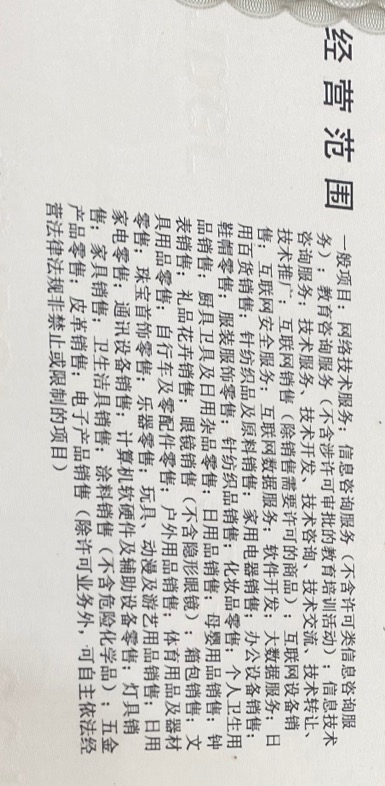 经营范围
一般项目：网络技术服务；信息咨询服务（不含许可类信息咨询服
务）；教育咨询服务（不含涉许可审批的教育培训活动）；信息技术
咨询服务；技术服务、技术开发、技术咨询、技术交流、技术转让、
技术推广；互联网销售（除销售需要许可的商品）；互联网设备销
售；互联网安全服务；互联网数据服务；软件开发；大数据服务；日
用百货销售；针纺织品及原料销售；家用电器销售；办公设备销售；
鞋帽零售；服装服饰零售；针纺织品销售；化妆品零售；个人卫生用
品销售；厨具卫具及日用杂品零售；日用品销售；母婴用品销售；钟
表销售；礼品花卉销售；眼镜销售（不含隐形眼镜）；箱包销售；文
具用品零售；自行车及零配件零售；户外用品销售；体育用品及器材
零售；珠宝首饰零售；乐器零售；玩具、动漫及游艺用品销售；日用
家电零售；通讯设备销售；计算机软硬件及辅助设备零售；灯具销
售；家具销售；卫生洁具销售；涂料销售（不含危险化学品）；五金
产品零售；皮革销售；电子产品销售（除许可业务外，可自主依法经
营法律法规非禁止或限制的项目）